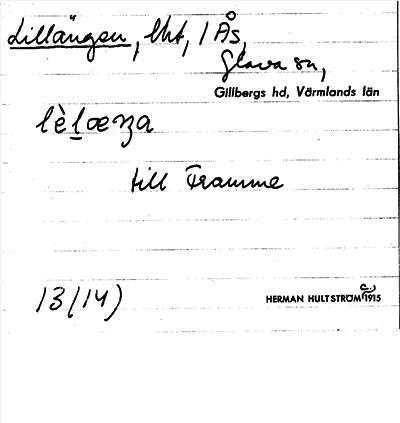 Lillängen, lht, 1 Ås,
Glava sn,
Gillbergs hd, Värmlands län
lèlœnʒa
till Framme
13(14)
HERMAN HULTSTRÖM c:a 1915